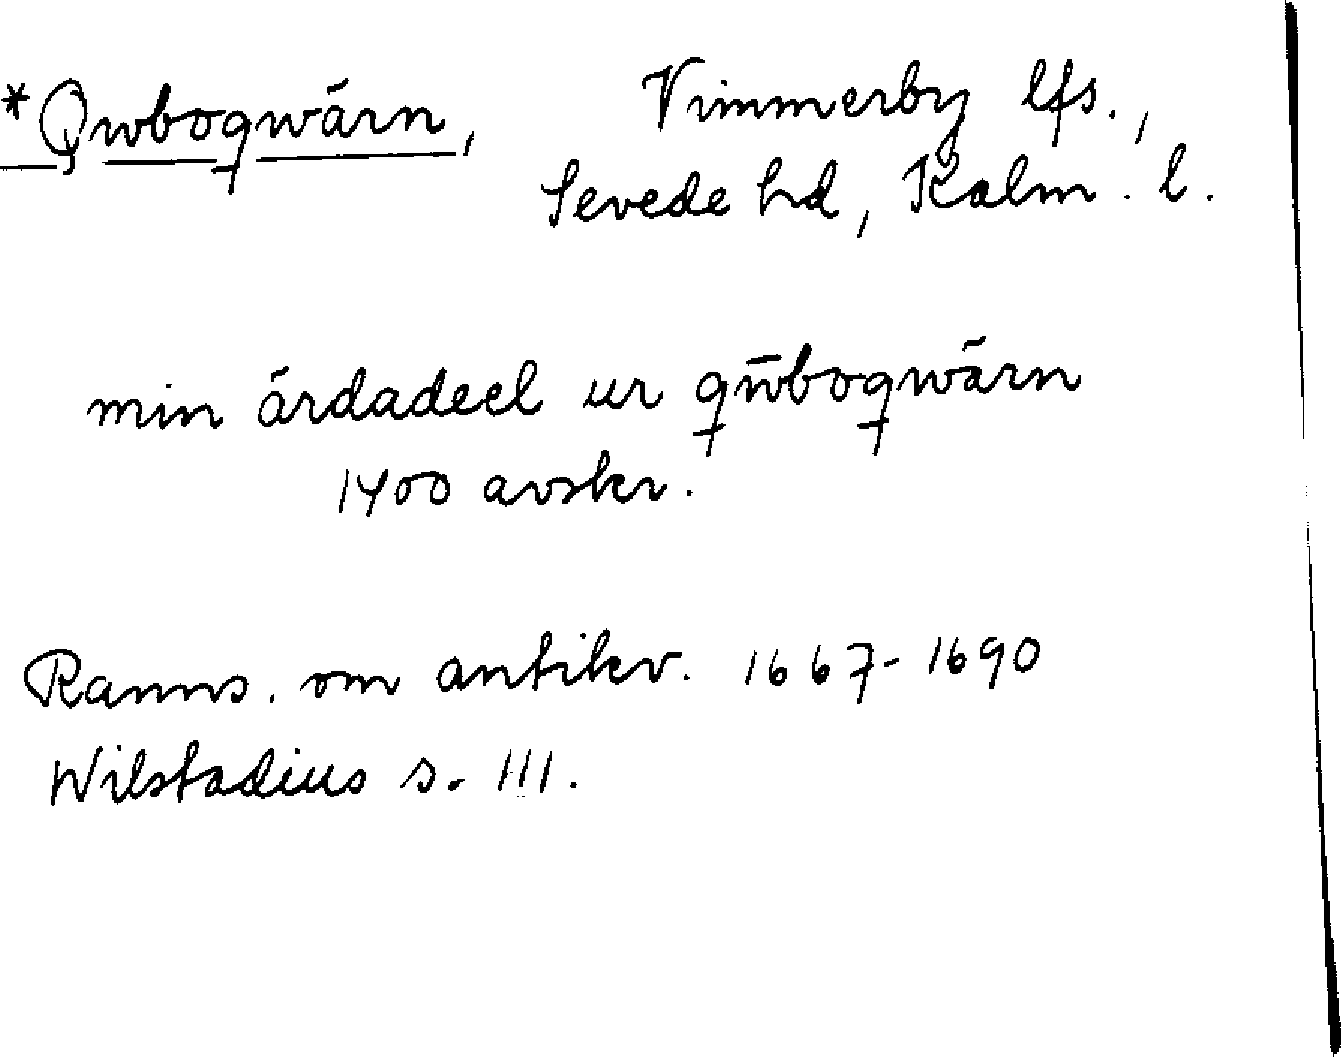 *Qwboqwärn, Vimmerby lfs.,
Sevede hd, Kalm. l.
min ärdadeel ur qw̄boqwärn
1400 avskr.
Ranns. om antikv. 1667-1690
Wilstadius s. 111.